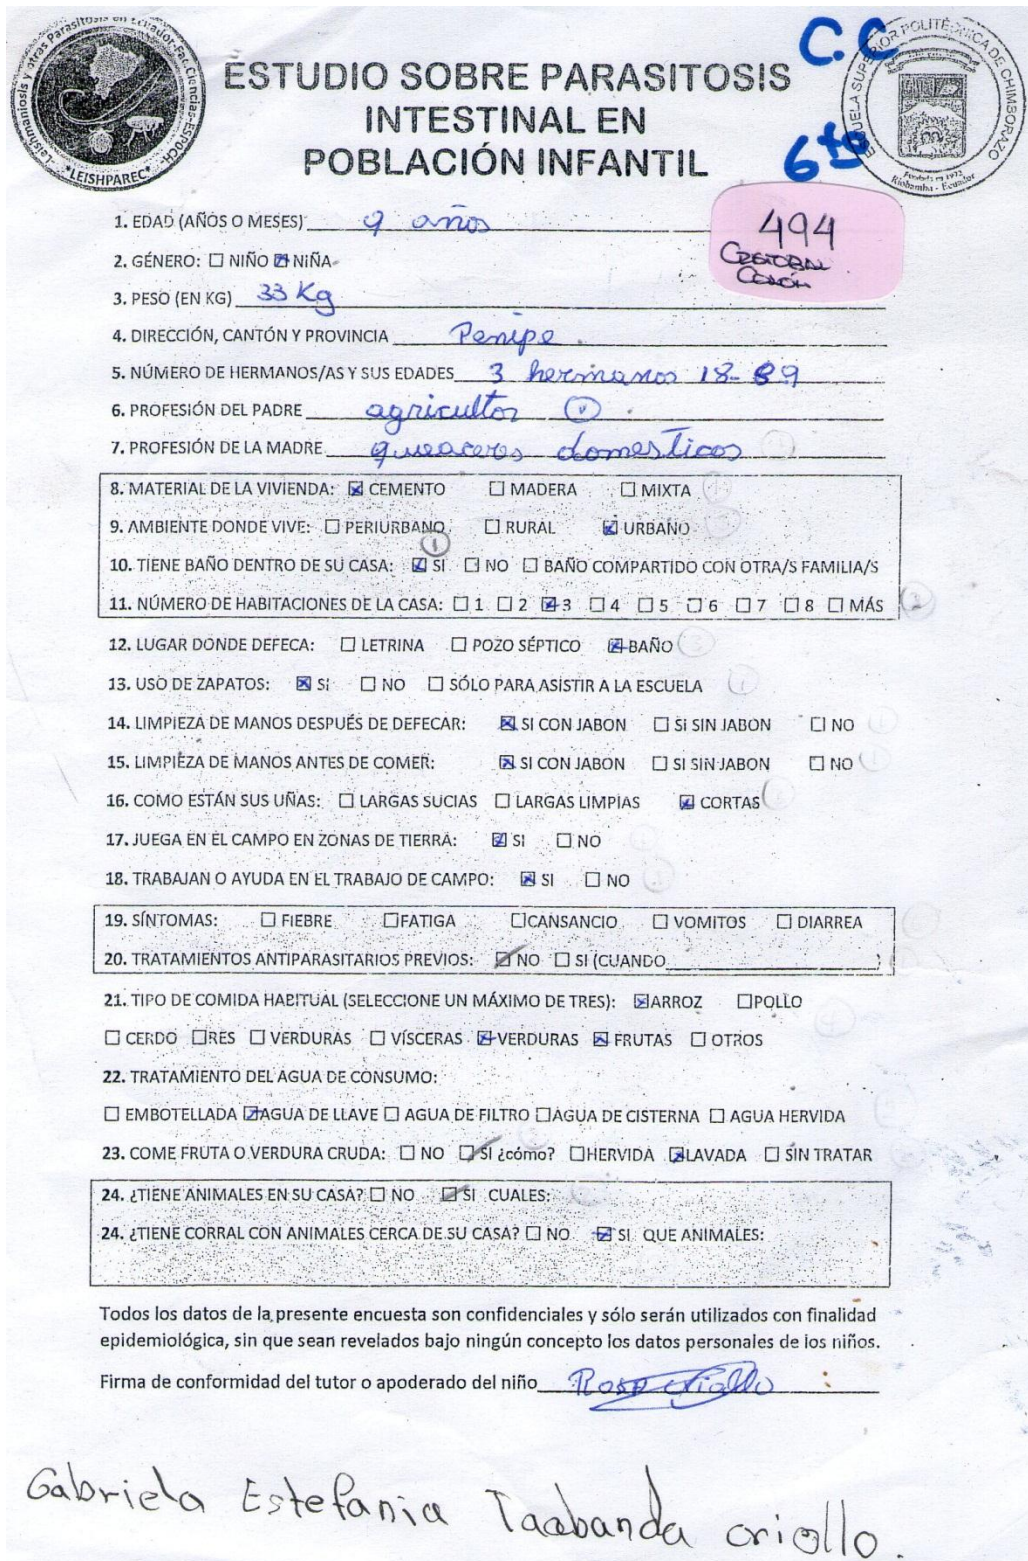 Leishmaniosis y otras Parasitosis en Ecuador-Fac.Ciencias-ESPOCH
•LEISHPAREC•
C.C
6to
ESCUELA SUPERIOR POLITÉCNICA DE CHIMBORAZO
Fundada en 1972
Riobamba - Ecuador
ESTUDIO SOBRE PARASITOSIS
INTESTINAL EN
POBLACIÓN INFANTIL
494
CRISTOBAL
COLÓN
1. EDAD (AÑOS O MESES) 9 años
2. GÉNERO: ☐ NIÑO ☒ NIÑA
3. PESO (EN KG) 33 Kg
4. DIRECCIÓN, CANTÓN Y PROVINCIA Penipe
5. NÚMERO DE HERMANOS/AS Y SUS EDADES 3 hermanos 18-
6. PROFESIÓN DEL PADRE agricultor
7. PROFESIÓN DE LA MADRE domesticos
8. MATERIAL DE LA VIVIENDA: ☒ CEMENTO ☐ MADERA ☐ MIXTA
9. AMBIENTE DONDE VIVE: ☐ PERIURBANO ☐ RURAL ☒ URBANO
10. TIENE BAÑO DENTRO DE SU CASA: ☒ SI ☐ NO ☐ BAÑO COMPARTIDO CON OTRA/S FAMILIA/S
11. NÚMERO DE HABITACIONES DE LA CASA: ☐ 1 ☐ 2 ☒ 3 ☐ 4 ☐ 5 ☐ 6 ☐ 7 ☐ 8 ☐ MÁS
12. LUGAR DONDE DEFECA: ☐ LETRINA ☐ POZO SÉPTICO ☒ BAÑO
13. USO DE ZAPATOS: ☒ SI ☐ NO ☐ SÓLO PARA ASISTIR A LA ESCUELA
14. LIMPIEZA DE MANOS DESPUÉS DE DEFECAR: ☒ SI CON JABON ☐ SI SIN JABON ☐ NO
15. LIMPIEZA DE MANOS ANTES DE COMER: ☒ SI CON JABON ☐ SI SIN JABON ☐ NO
16. COMO ESTÁN SUS UÑAS: ☐ LARGAS SUCIAS ☐ LARGAS LIMPIAS ☒ CORTAS
17. JUEGA EN EL CAMPO EN ZONAS DE TIERRA: ☒ SI ☐ NO
18. TRABAJAN O AYUDA EN EL TRABAJO DE CAMPO: ☒ SI ☐ NO
19. SÍNTOMAS: ☐ FIEBRE ☐ FATIGA ☐ CANSANCIO ☐ VOMITOS ☐ DIARREA
20. TRATAMIENTOS ANTIPARASITARIOS PREVIOS: ☒ NO ☐ SI (CUANDO )
21. TIPO DE COMIDA HABITUAL (SELECCIONE UN MÁXIMO DE TRES): ☒ ARROZ ☐ POLLO
☐ CERDO ☐ RES ☐ VERDURAS ☐ VÍSCERAS ☒ VERDURAS ☒ FRUTAS ☐ OTROS
22. TRATAMIENTO DEL AGUA DE CONSUMO:
☐ EMBOTELLADA ☒ AGUA DE LLAVE ☐ AGUA DE FILTRO ☐ AGUA DE CISTERNA ☐ AGUA HERVIDA
23. COME FRUTA O VERDURA CRUDA: ☐ NO ☒ SI ¿cómo? ☐ HERVIDA ☒ LAVADA ☐ SIN TRATAR
24. ¿TIENE ANIMALES EN SU CASA? ☐ NO ☒ SI CUALES:
24. ¿TIENE CORRAL CON ANIMALES CERCA DE SU CASA? ☐ NO ☒ SI QUE ANIMALES:
Todos los datos de la presente encuesta son confidenciales y sólo serán utilizados con finalidad
epidemiológica, sin que sean revelados bajo ningún concepto los datos personales de los niños.
Firma de conformidad del tutor o apoderado del niño Rosa Criollo
Gabriela Estefania Taabanda criollo.